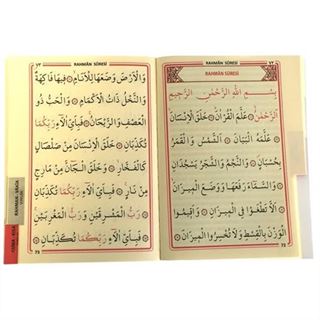 RAHMÂN SÛRESİ
RAHMÂN SÛRESİ
بِسْمِ اللّٰهِ الرَّحْمٰنِ الرَّحِيمِ
اَلرَّحْمٰنُ ۝ عَلَّمَ الْقُرْاٰنَ ۝ خَلَقَ الْاِنْسَانَ ۝
عَلَّمَهُ الْبَيَانَ ۝ اَلشَّمْسُ وَالْقَمَرُ
بِحُسْبَانٍ ۝ وَالنَّجْمُ وَالشَّجَرُ يَسْجُدَانِ
وَالسَّمَاءَ رَفَعَهَا وَوَضَعَ الْمِيزَانَ
اَلَّا تَطْغَوْا فِى الْمِيزَانِ ۝ وَاَقِيمُوا
الْوَزْنَ بِالْقِسْطِ وَلَا تُخْسِرُوا الْمِيزَانَ
72
RAHMÂN SÛRESİ
وَالْاَرْضَ وَضَعَهَا لِلْاَنَامِ ۝ فِيهَا فَاكِهَةٌ
وَالنَّخْلُ ذَاتُ الْاَكْمَامِ ۝ وَالْحَبُّ ذُو
الْعَصْفِ وَالرَّيْحَانُ ۝ فَبِاَىِّ اٰلَاءِ رَبِّكُمَا
تُكَذِّبَانِ ۝ خَلَقَ الْاِنْسَانَ مِنْ صَلْصَالٍ
كَالْفَخَّارِ ۝ وَخَلَقَ الْجَانَّ مِنْ مَارِجٍ
مِنْ نَارٍ ۝ فَبِاَىِّ اٰلَاءِ رَبِّكُمَا تُكَذِّبَانِ
۝ رَبُّ الْمَشْرِقَيْنِ وَرَبُّ الْمَغْرِبَيْنِ ۝
فَبِاَىِّ اٰلَاءِ رَبِّكُمَا تُكَذِّبَانِ
73
RAHMAN - VAKIA